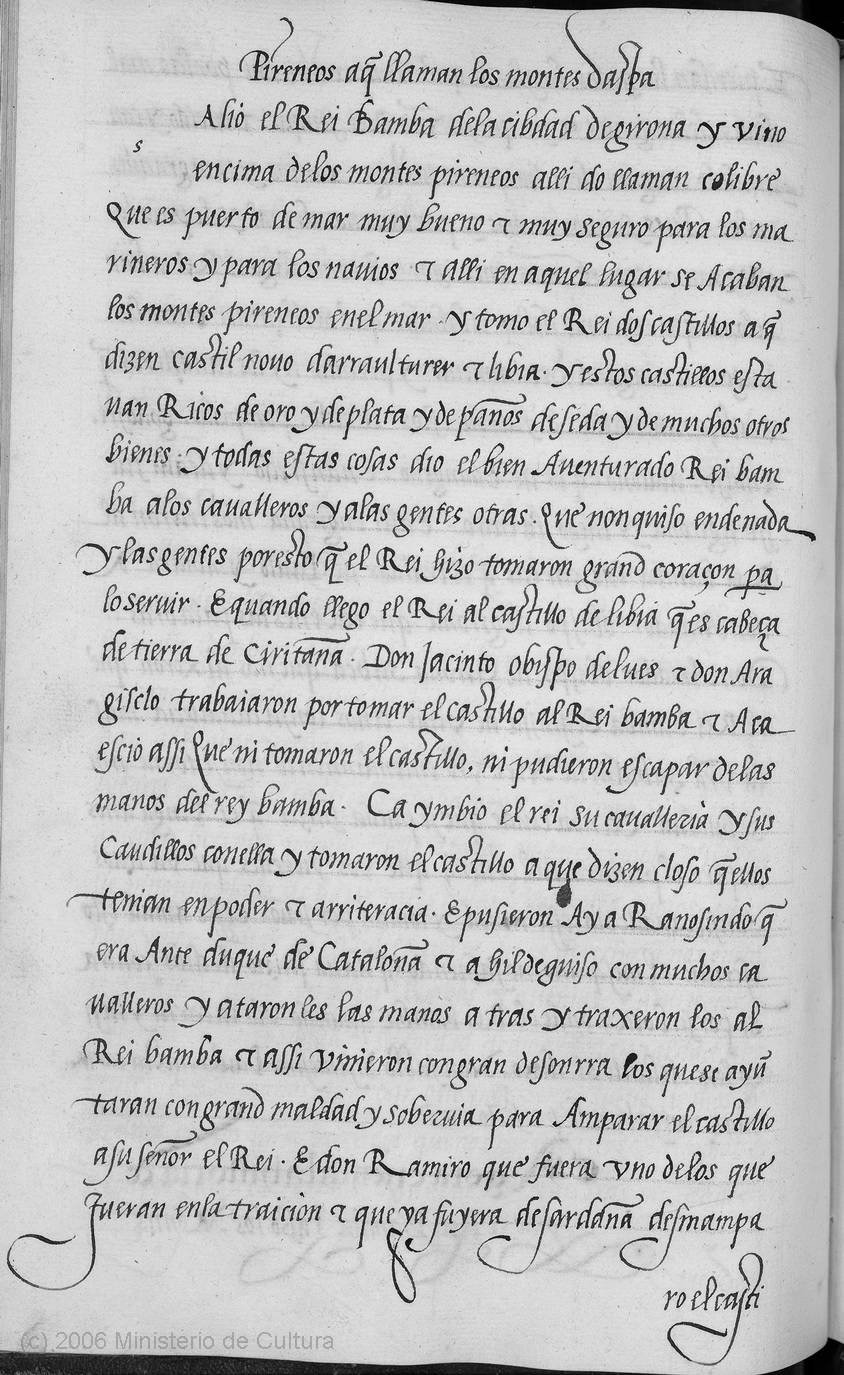 Pireneos aq̃ llaman los montes daspa
Alio el Rei Bamba dela cibdad degirona y vino
s
encima delos montes pireneos alli do llaman colibre
Que es puerto de mar muy bueno τ muy seguro para los ma
rineros y para los nauios τ alli en aquel lugar se Acaban
los montes pireneos enel mar · y tomo el Rei dos castillos a q̃
dizen castil nouo darraulturer τ libia · y estos castillos esta
uan Ricos de oro y de plata y de pãnos de seda y de muchos otros
bienes · y todas estas cosas dio el bien Auenturado Rei bam
ba alos caualleros y alas gentes otras. Que non quiso endenada
y las gentes poresto q̃ el Rei hizo tomaron grand coraçon pa
lo seruir · E quando llego el Rei al castillo de libia q̃ es cabeça
de tierra de Ciritãna · Don Jacinto obispo delues τ don Ara
gisclo trabaiaron por tomar el castillo al Rei bamba τ Aca
escio assi Que ni tomaron el castillo, ni pudieron escapar delas
manos del rey bamba · Ca ymbio el rei su caualleria y sus
Caudillos conella y tomaron el castillo a que dizen closo q̃ ellos
tenian en poder τ arriteracia · E pusieron Ay a Ranosindo q̃
era Ante duque de Catalonã τ a hildeguiso con muchos ca
ualleros y ataron les las manos a tras y traxeron los al
Rei bamba τ assi vinieron con gran desonrra los que se ayũ
taran con grand maldad y soberuia para Amparar el castillo
a su señor el Rei · E don Ramiro que fuera vno delos que
fueran enla traicion τ que ya fuyera de sardãna desmampa
ro el casti
(c) 2006 Ministerio de Cultura